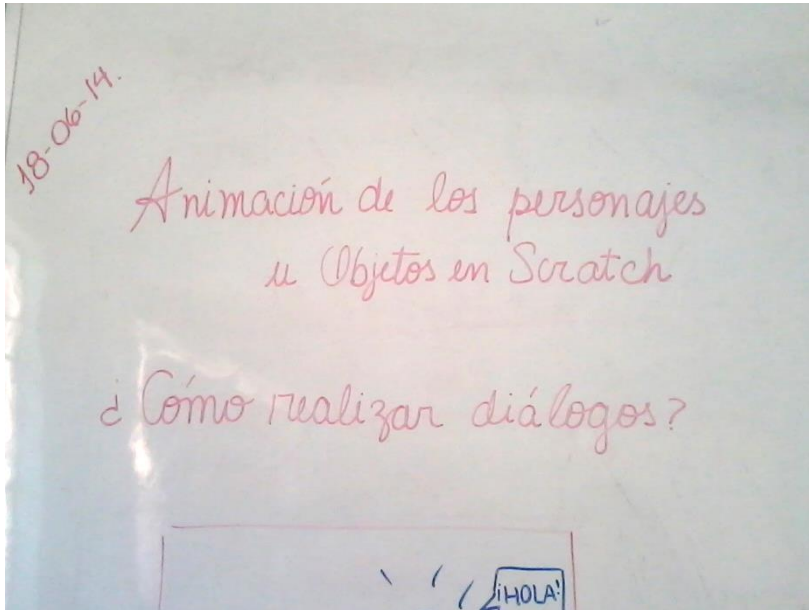 18-06-14.
Animación de los personajes
u Objetos en Scratch
¿Cómo realizar diálogos?
¡HOLA!